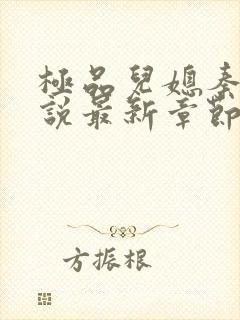 極品兒媳秦
說最新章節
方振根